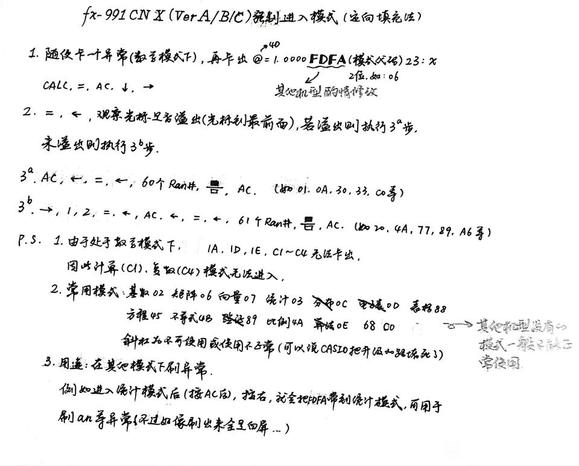 fx-991 CN X (Ver A/B/C) 强制进入模式 (定向填充法)
1. 随便卡一个异常(数学模式下), 再卡出 @=1.0000 FDFA (模式代码) 23: x
→40
2位, 如: 06
CALC, =, AC, ↓, →
其他机型酌情修改
2. =, ←, 观察光标是否溢出(光标到最前面), 若溢出则执行3ª步.
未溢出则执行3ᵇ步.
3ª. AC, ←, =, ←, 60个Ran#, AC. (如 01, 0A, 30, 33, C0 等)
3ᵇ. →, 1, 2, =, ←, AC, ←, =, ←, 61个Ran#, AC. (如 20, 4A, 77, 89, A6 等)
P.S. 1. 由于处于数学模式下, 1A, 1D, 1E, C1~C4 无法卡出,
因此计算(C1), 复数(C4) 模式无法进入.
2. 常用模式: 基数02 矩阵06 向量07 统计03 分布0C 电子表0D 表格88
方程45 不等式4B 验证89 比例4A 算法0E 68 C0
其他机型没有的模式一般不能正常使用.
斜杠为不可使用或使用不正常(可以说CASIO把升级和谐玩死了)
3. 用途: 在其他模式下刷异常.
例如进入统计模式后(按AC后), 按右, 就会把FDFA带到统计模式, 可用于
刷an等异常(不过好像刷出来全是白屏...)